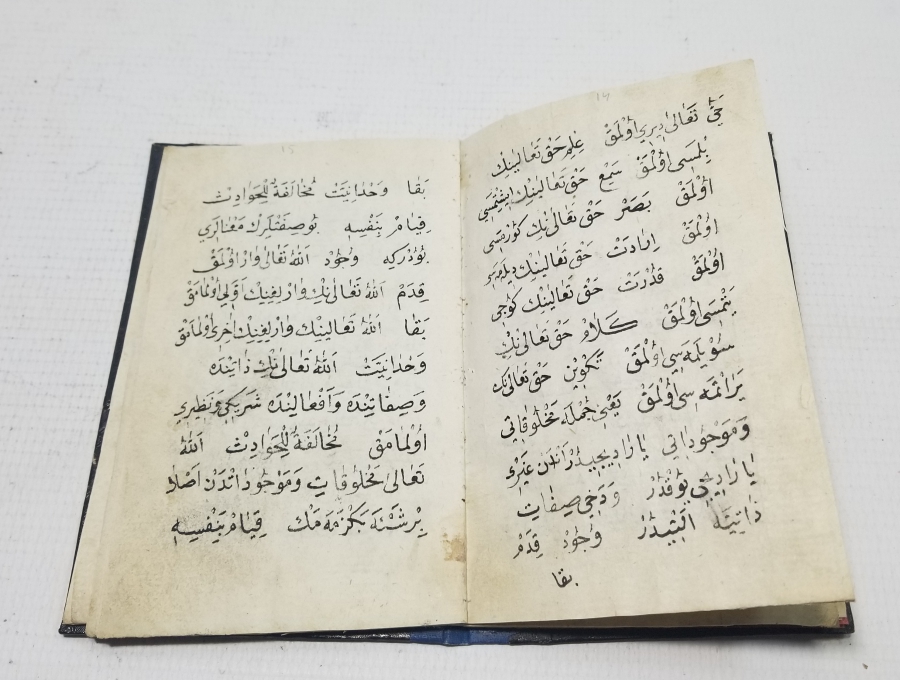 ١٤
حَيّ تَعَالٰى دِيرِى اَوُلْمَقْ عِلِمْ حَقْ تَعَالِينِكْ
بِلْمَسِى اَوُلْمَقْ سَمِعْ حَقْ تَعَالِينِكْ اِيشِتْمَسِى
اَوُلْمَقْ بَصَرْ حَقْ تَعَالٰى نِكْ كَوُرْمَسِى
اَوُلْمَقْ اِرَادَتْ حَقْ تَعَالِينِكْ دِيلَمَسِى
اَوُلْمَقْ قُدْرَتْ حَقْ تَعَالِينِكْ كُوجِى
يَتْمَسِى اَوُلْمَقْ كَلَامْ حَقْ تَعَالٰى نِكْ
سُويْلَمَسِى اَوُلْمَقْ تَكْوِينْ حَقْ تَعَالٰى نِكْ
يَرَاتْمَه سِى اَوُلْمَقْ يَعْنِى جُمْلَه مَخْلُوقَاتِى
وَمَوْجُودَاتِى يَارَادِيجِيدُرْ اَنْدَنْ غَيْرِى
يَارَادِيجِى يُوقْدُرْ وَدَخِى صِفَاتِ
ذَاتِيَّه اَلْتِيدُرْ وُجُودْ قِدَمْ
بقا
١٥
بَقَا وَحْدَانِيَّتْ مُخَالَفَةٌ لِلْحَوَادِثْ
قِيَامْ بِنَفْسِه بُوصِفَتْلَرِكْ مَعْنَالَرِى
بُودُرْكِه وُجُودْ اَللّٰهُ تَعَالٰى وَارْ اَوُلْمَقْ
قِدَمْ اَللّٰهُ تَعَالٰى نِكْ وَارْلِغِينِكْ اَوَّلِى اَوُلْمَامَقْ
بَقَا اَللّٰهُ تَعَالِينِكْ وَارْلِغِينِكْ اٰخِرِى اَوُلْمَامَقْ
وَحْدَانِيَّتْ اَللّٰهُ تَعَالٰى نِكْ ذَاتِنْدَه
وَصِفَاتِنْدَه وَاَفْعَالِنْدَه شَرِيكِى وَنَظِيرِى
اَوُلْمَامَقْ مُخَالَفَةٌ لِلْحَوَادِثْ اَللّٰهُ
تَعَالٰى مَخْلُوقَاتِ وَمَوْجُودَاتْدَنْ اَصْلَا
بِرْشَئَه بَكْزَمَه مَكْ قِيَامْ بِنَفْسِه